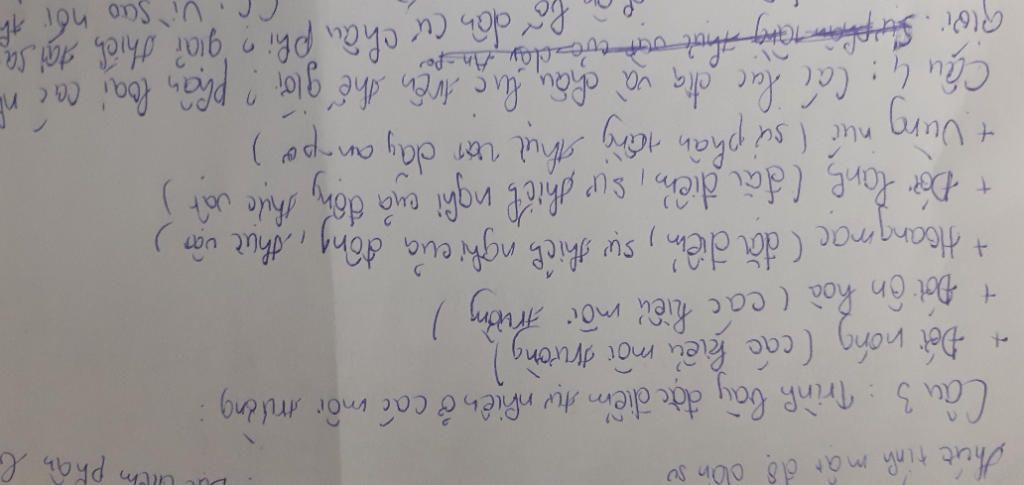 thức tính mật độ dân số
điểm phân
Câu 3 : Trình bày đặc điểm tự nhiên ở các môi trường :
+ Đới nóng ( các kiểu môi trường )
+ Đới ôn hoà ( các kiểu môi trường )
+ Hoang mạc ( đặc điểm , sự thích nghi của động , thực vật )
+ Đới lạnh ( đặc điểm , sự thích nghi của động thực vật )
+ Vùng núi ( sự phân tầng thực vật dãy an-pơ )
Câu 4 : Các lục địa và châu lục trên thế giới ? phân loại các
dân cư châu phi ? giải thích tại sa
giới .
Vì sao nói